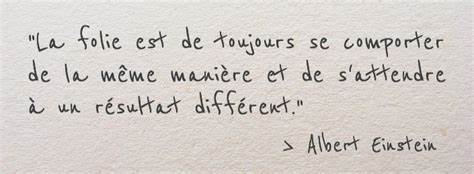 "La folie est de toujours se comporter
de la même manière et de s'attendre
à un résultat différent."
> Albert Einstein